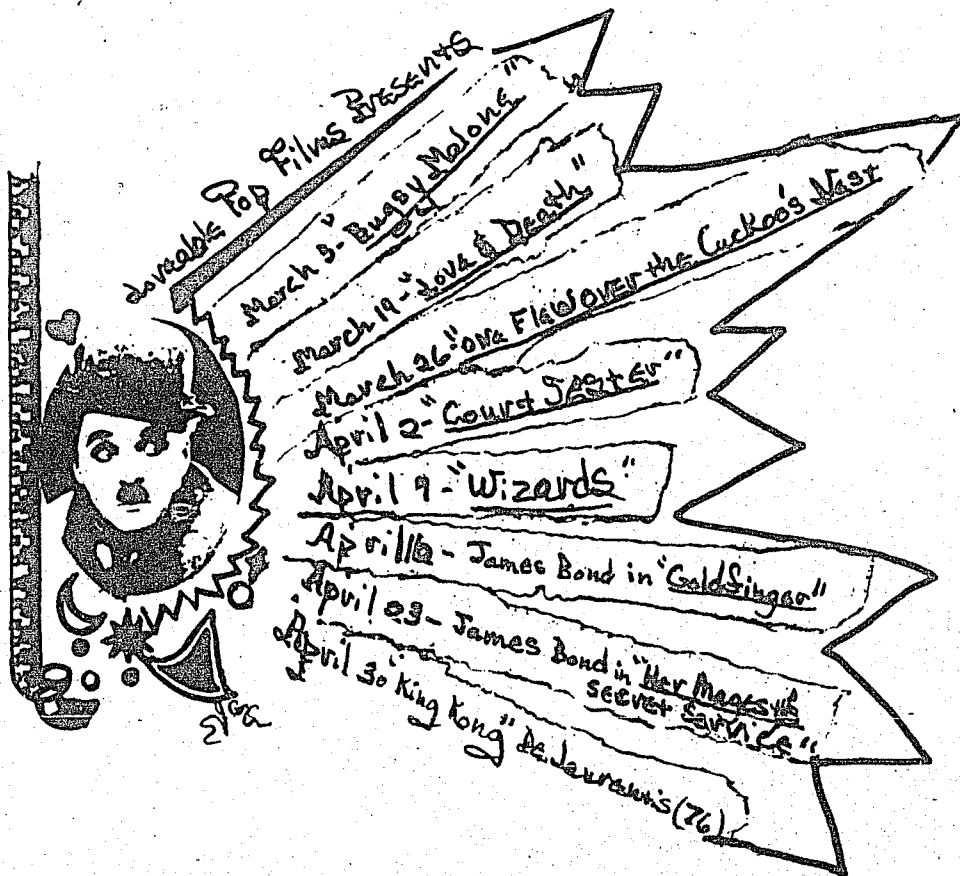 Loveable Pop Films Presents
March 5 - "Bugsy Malone"
March 19 - "Love & Death"
March 26 "One Flew Over the Cuckoo's Nest
April 2 - "Court Jester"
April 9 - "Wizards"
April 16 - James Bond in "Goldfinger"
April 23 - James Bond in "Her Majesty's
Secret Service"
April 30 "King Kong" De Laurentis (76)